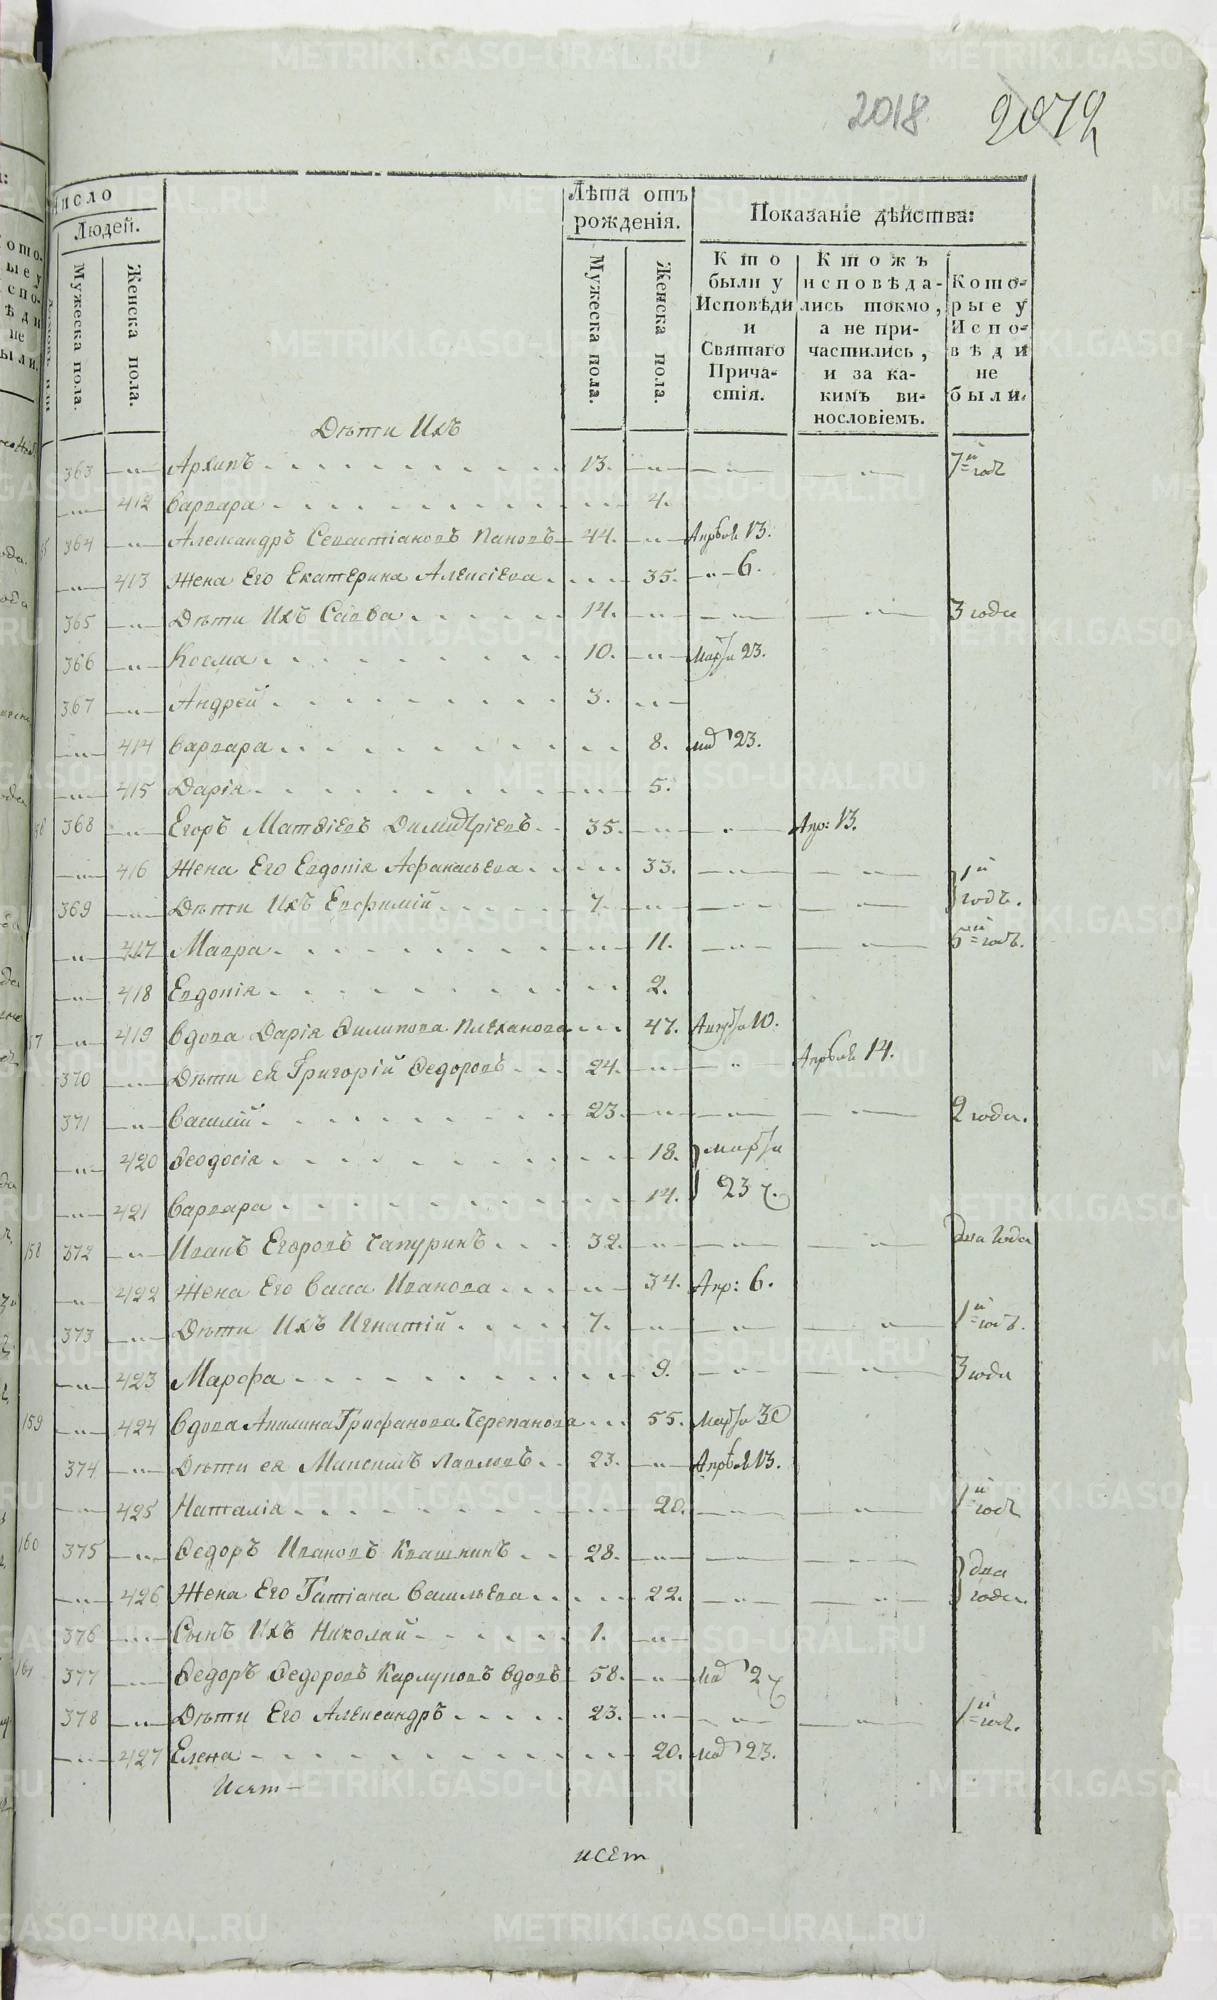 2018 2072
Число Людей.
Мужеска пола.
Женска пола.
Лѣта отъ рожденія.
Мужеска пола.
Женска пола.
Показаніе дѣйства:
Кто были у Исповѣди и Святаго Причастія.
Ктожъ исповѣдались токмо, а не причастились, и за какимъ винословіемъ.
Которые у Исповѣди не были.
Дѣти Ихъ
363 Архипъ 13. 7й годъ
412 Варвара 4.
364 Александръ Севастіановъ Пановъ 44. Апрѣля 13.
413 Жена Его Екатерина Алексіева 35. 6.
365 Дѣти Ихъ Савва 14. 3 года
366 Косма 10. Марта 23.
367 Андрей 3.
414 Варвара 8. 23.
415 Дарія 5.
368 Егоръ Матвіевъ Димитріевъ 35. Апр: 13.
416 Жена Его Евдокія Афанасьева 33. 1й
369 Дѣти Ихъ Евфимій 7. годъ.
417 Мавра 11. 6й годъ.
418 Евдокія 2.
157 419 Вдова Дарія Филипова Плеханова 47. 10.
370 Дѣти ея Григорій Федоровъ 24. Апрѣля 14.
371 Василій 23. 2 года.
420 Феодосія 18. Марта
421 Варвара 14. 23 ч.
158 372 Иванъ Егоровъ Чапуринъ 32. два года
422 Жена Его Васса Иванова 34. Апр: 6.
373 Дѣти Ихъ Игнатій 7. 1й годъ.
423 Марфа 9. 3 года
159 424 Вдова Акилина Трифанова Черепанова 55. Марта 30
374 Дѣти ея Максимъ Павловъ 23. Апрѣля 13.
425 Наталія 20. 1й годъ
160 375 Федоръ Ивановъ Квашнинъ 28. два
426 Жена Его Татіана Васильева 22. года.
376 Сынъ Ихъ Николай 1.
161 377 Федоръ Федоровъ Карлуковъ Вдовъ 58. 2 ч
378 Дѣти Его Александръ 23. 1й годъ.
427 Елена 20. 23.
Исет-
исет
METRIKI.GASO-URAL.RU